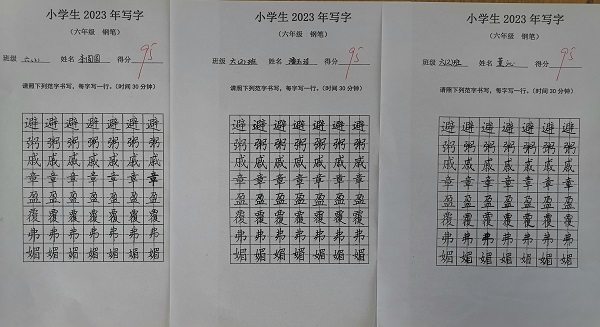 小学生 2023 年写字
（六年级 钢笔）
班级 六(1) 姓名 得分 95
请照下列范字书写，每字写一行。（时间 30 分钟）
避避避避避避避
粥粥粥粥粥粥粥
戚戚戚戚戚戚戚
章章章章章章章
盈盈盈盈盈盈盈
覆覆覆覆覆覆覆
弗弗弗弗弗弗弗
媚媚媚媚媚媚媚
小学生 2023 年写字
（六年级 钢笔）
班级 六(2)班 姓名 得分 95
请照下列范字书写，每字写一行。（时间 30 分钟）
避避避避避避避
粥粥粥粥粥粥粥
戚戚戚戚戚戚戚
章章章章章章章
盈盈盈盈盈盈盈
覆覆覆覆覆覆覆
弗弗弗弗弗弗弗
媚媚媚媚媚媚媚
小学生 2023 年写字
（六年级 钢笔）
班级 六(2)班 姓名 得分 95
请照下列范字书写，每字写一行。（时间 30 分钟）
避避避避避避避
粥粥粥粥粥粥粥
戚戚戚戚戚戚戚
章章章章章章章
盈盈盈盈盈盈盈
覆覆覆覆覆覆覆
弗弗弗弗弗弗弗
媚媚媚媚媚媚媚